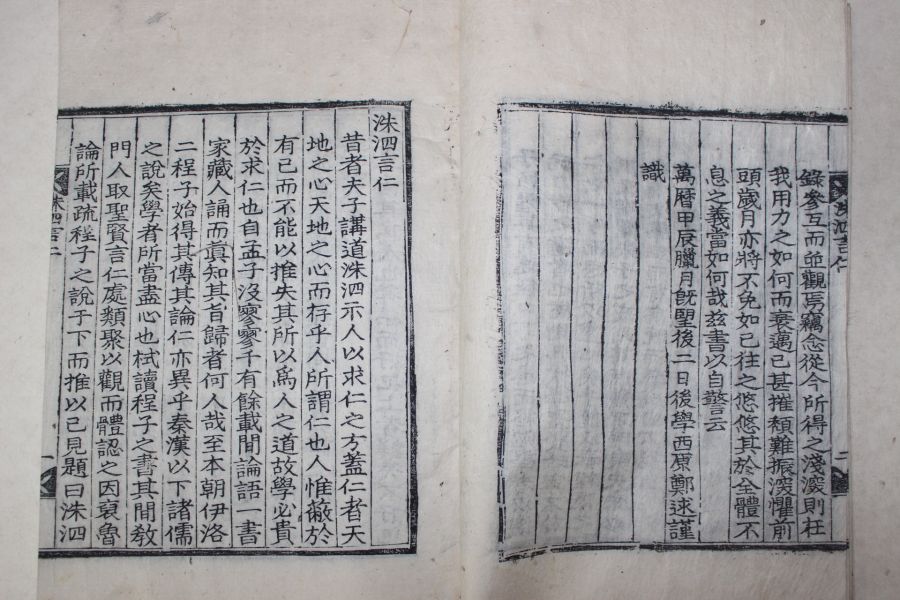 洙泗言仁
二
錄參互而並觀焉竊念從今所得之淺深則在
我用力之如何而衰邁已甚摧頹難振深懼前
頭歲月亦將不免如已往之悠悠其於全體不
息之義當如何哉玆書以自警云
萬曆甲辰臘月旣望後二日後學西原鄭逑謹
識
洙泗言仁
昔者夫子講道洙泗示人以求仁之方蓋仁者天
地之心天地之心而存乎人所謂仁也人惟蔽於
有己而不能以推失其所以爲人之道故學必貴
於求仁也自孟子沒寥寥千有餘載間論語一書
家藏人誦而眞知其旨歸者何人哉至本朝伊洛
二程子始得其傳其論仁亦異乎秦漢以下諸儒
之說矣學者所當盡心也栻讀程子之書其間敎
門人取聖賢言仁處類聚以觀而體認之因裒魯
論所載疏程子之說于下而推以己見題曰洙泗
洙泗言仁
一